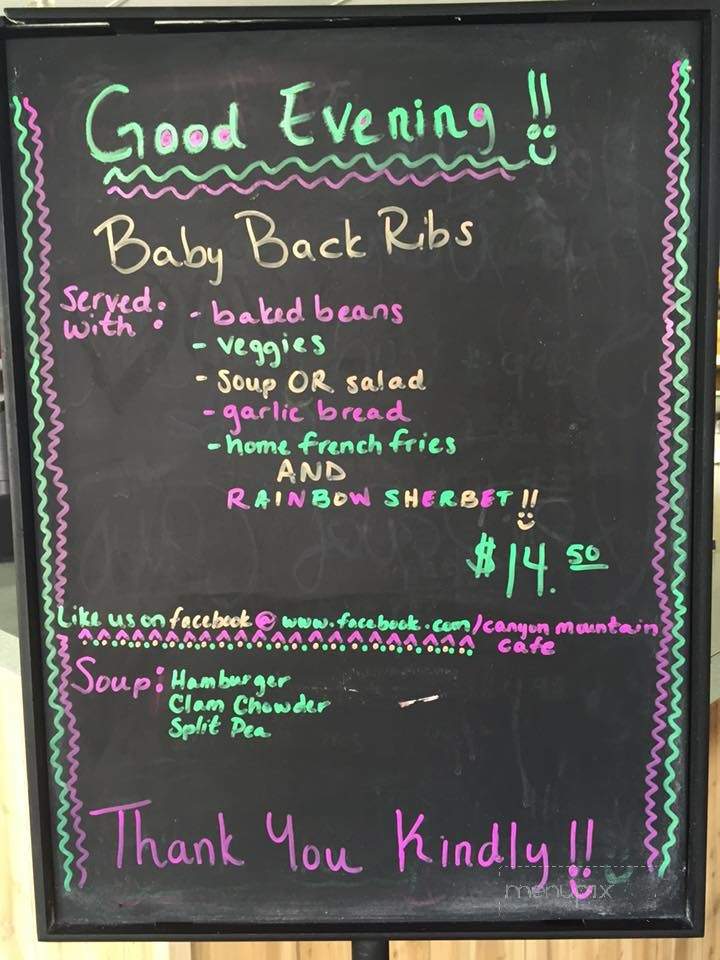 Good Evening !!
Baby Back Ribs
Served with:
- baked beans
- veggies
- soup OR salad
- garlic bread
- home french fries
AND
RAINBOW SHERBET !!
$14.50
Like us on facebook @ www.facebook.com/canyon mountain cafe
Soup: Hamburger
Clam Chowder
Split Pea
Thank You Kindly !!
menupix